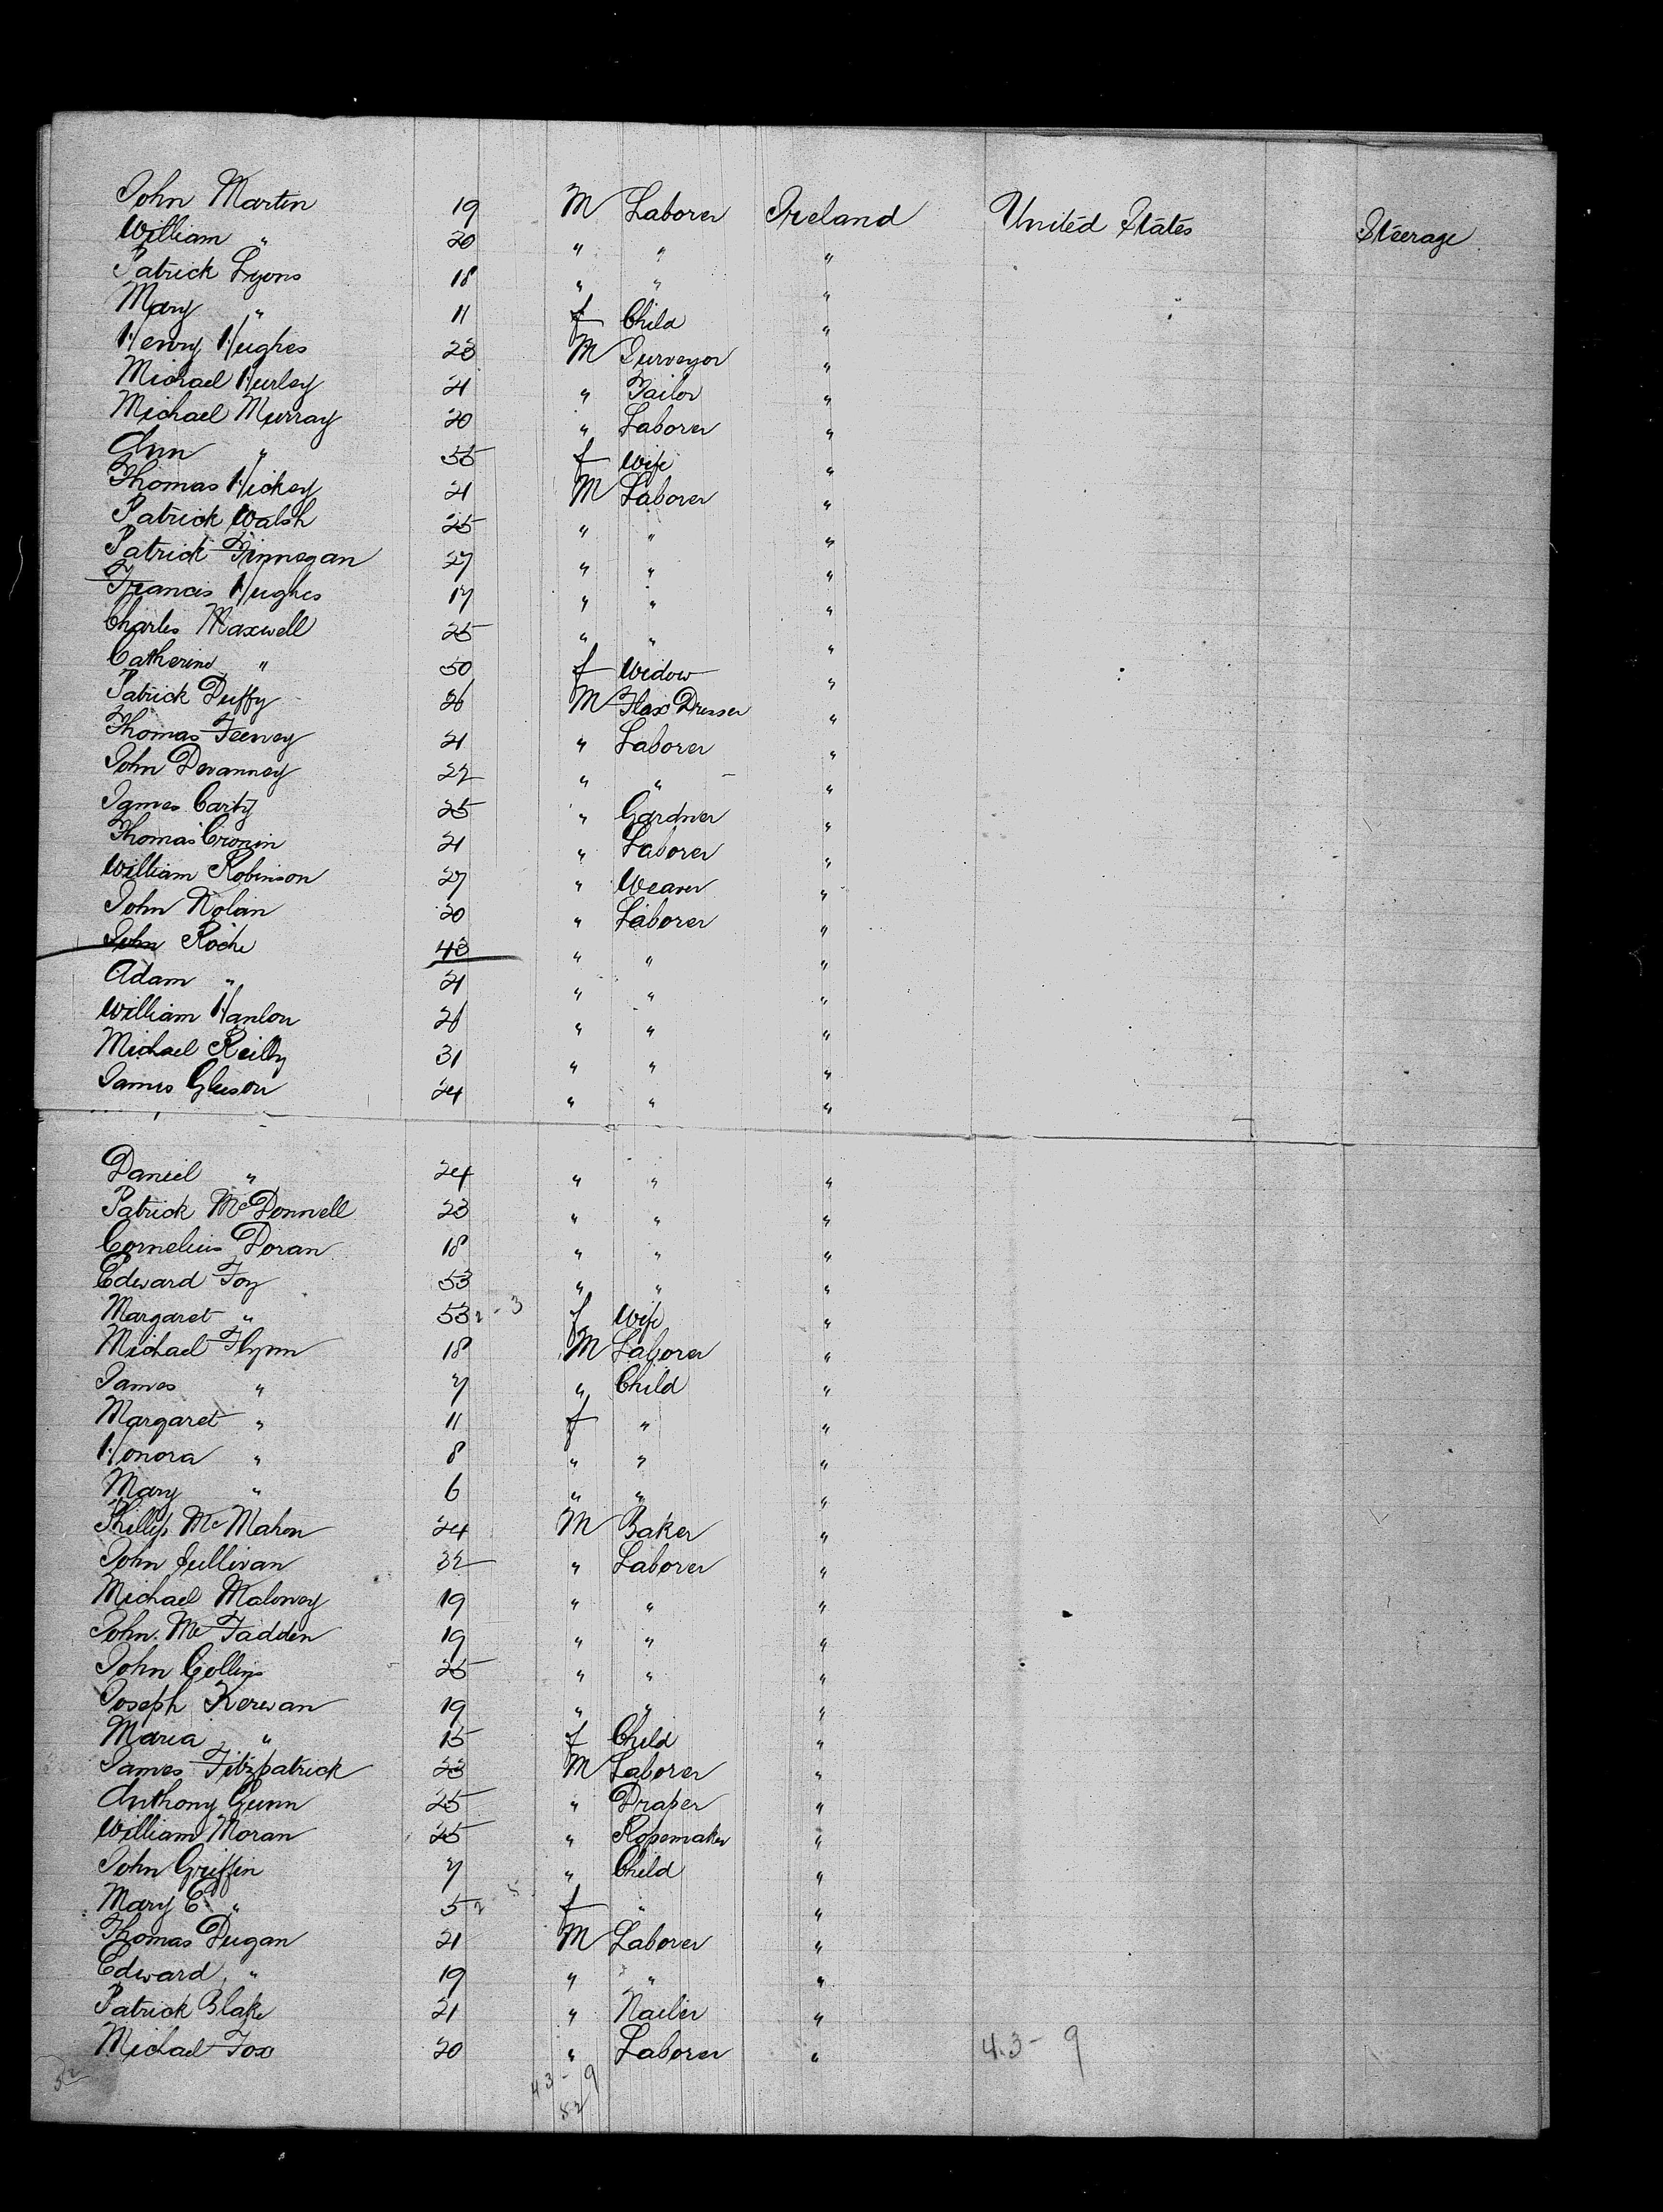 John Martin 19 M Laborer Ireland United States Steerage
William " 20 " " "
Patrick Lyons 18 " " "
Mary " 11 f Child "
Henry Hughes 23 M Surveyor "
Michael Hurley 21 " Tailor "
Michael Murray 20 " Laborer "
Ann " 55 f Wife "
Thomas Hickey 21 M Laborer "
Patrick Walsh 25 " " "
Patrick Finnegan 27 " " "
Francis Hughes 17 " " "
Charles Maxwell 25 " " "
Catherine " 50 f Widow "
Patrick Duffy 26 M Flax Dresser "
Thomas Feeney 21 " Laborer "
John Devanney 22 " " "
James Carty 25 " Gardner "
Thomas Cronin 21 " Laborer "
William Robinson 27 " Weaver "
John Nolan 20 " Laborer "
John Roche 43 " " "
Adam " 21 " " "
William Hanlon 26 " " "
Michael Reilly 31 " " "
James Gleeson 24 " " "
Daniel " 24 " " "
Patrick McDonnell 23 " " "
Cornelius Doran 18 " " "
Edward Foy 53 " " "
Margaret " 53 2-3 f Wife "
Michael Flynn 18 M Laborer "
James " 7 " Child "
Margaret " 11 f " "
Honora " 8 " " "
Mary " 6 " " "
Phillip McMahon 24 M Baker "
John Sullivan 32 " Laborer "
Michael Maloney 19 " " "
John McFadden 19 " " "
John Collins 25 " " "
Joseph Kerwan 19 " " "
Maria " 15 f Child "
James Fitzpatrick 23 M Laborer "
Anthony Gunn 25 " Draper "
William Moran 25 " Ropemaker "
John Griffin 7 " Child "
Mary E " 5 f " "
Thomas Dugan 21 M Laborer "
Edward " 19 " " "
Patrick Blake 21 " Nailer "
Michael Fox 20 " Laborer " 43-9
52 43-9
52